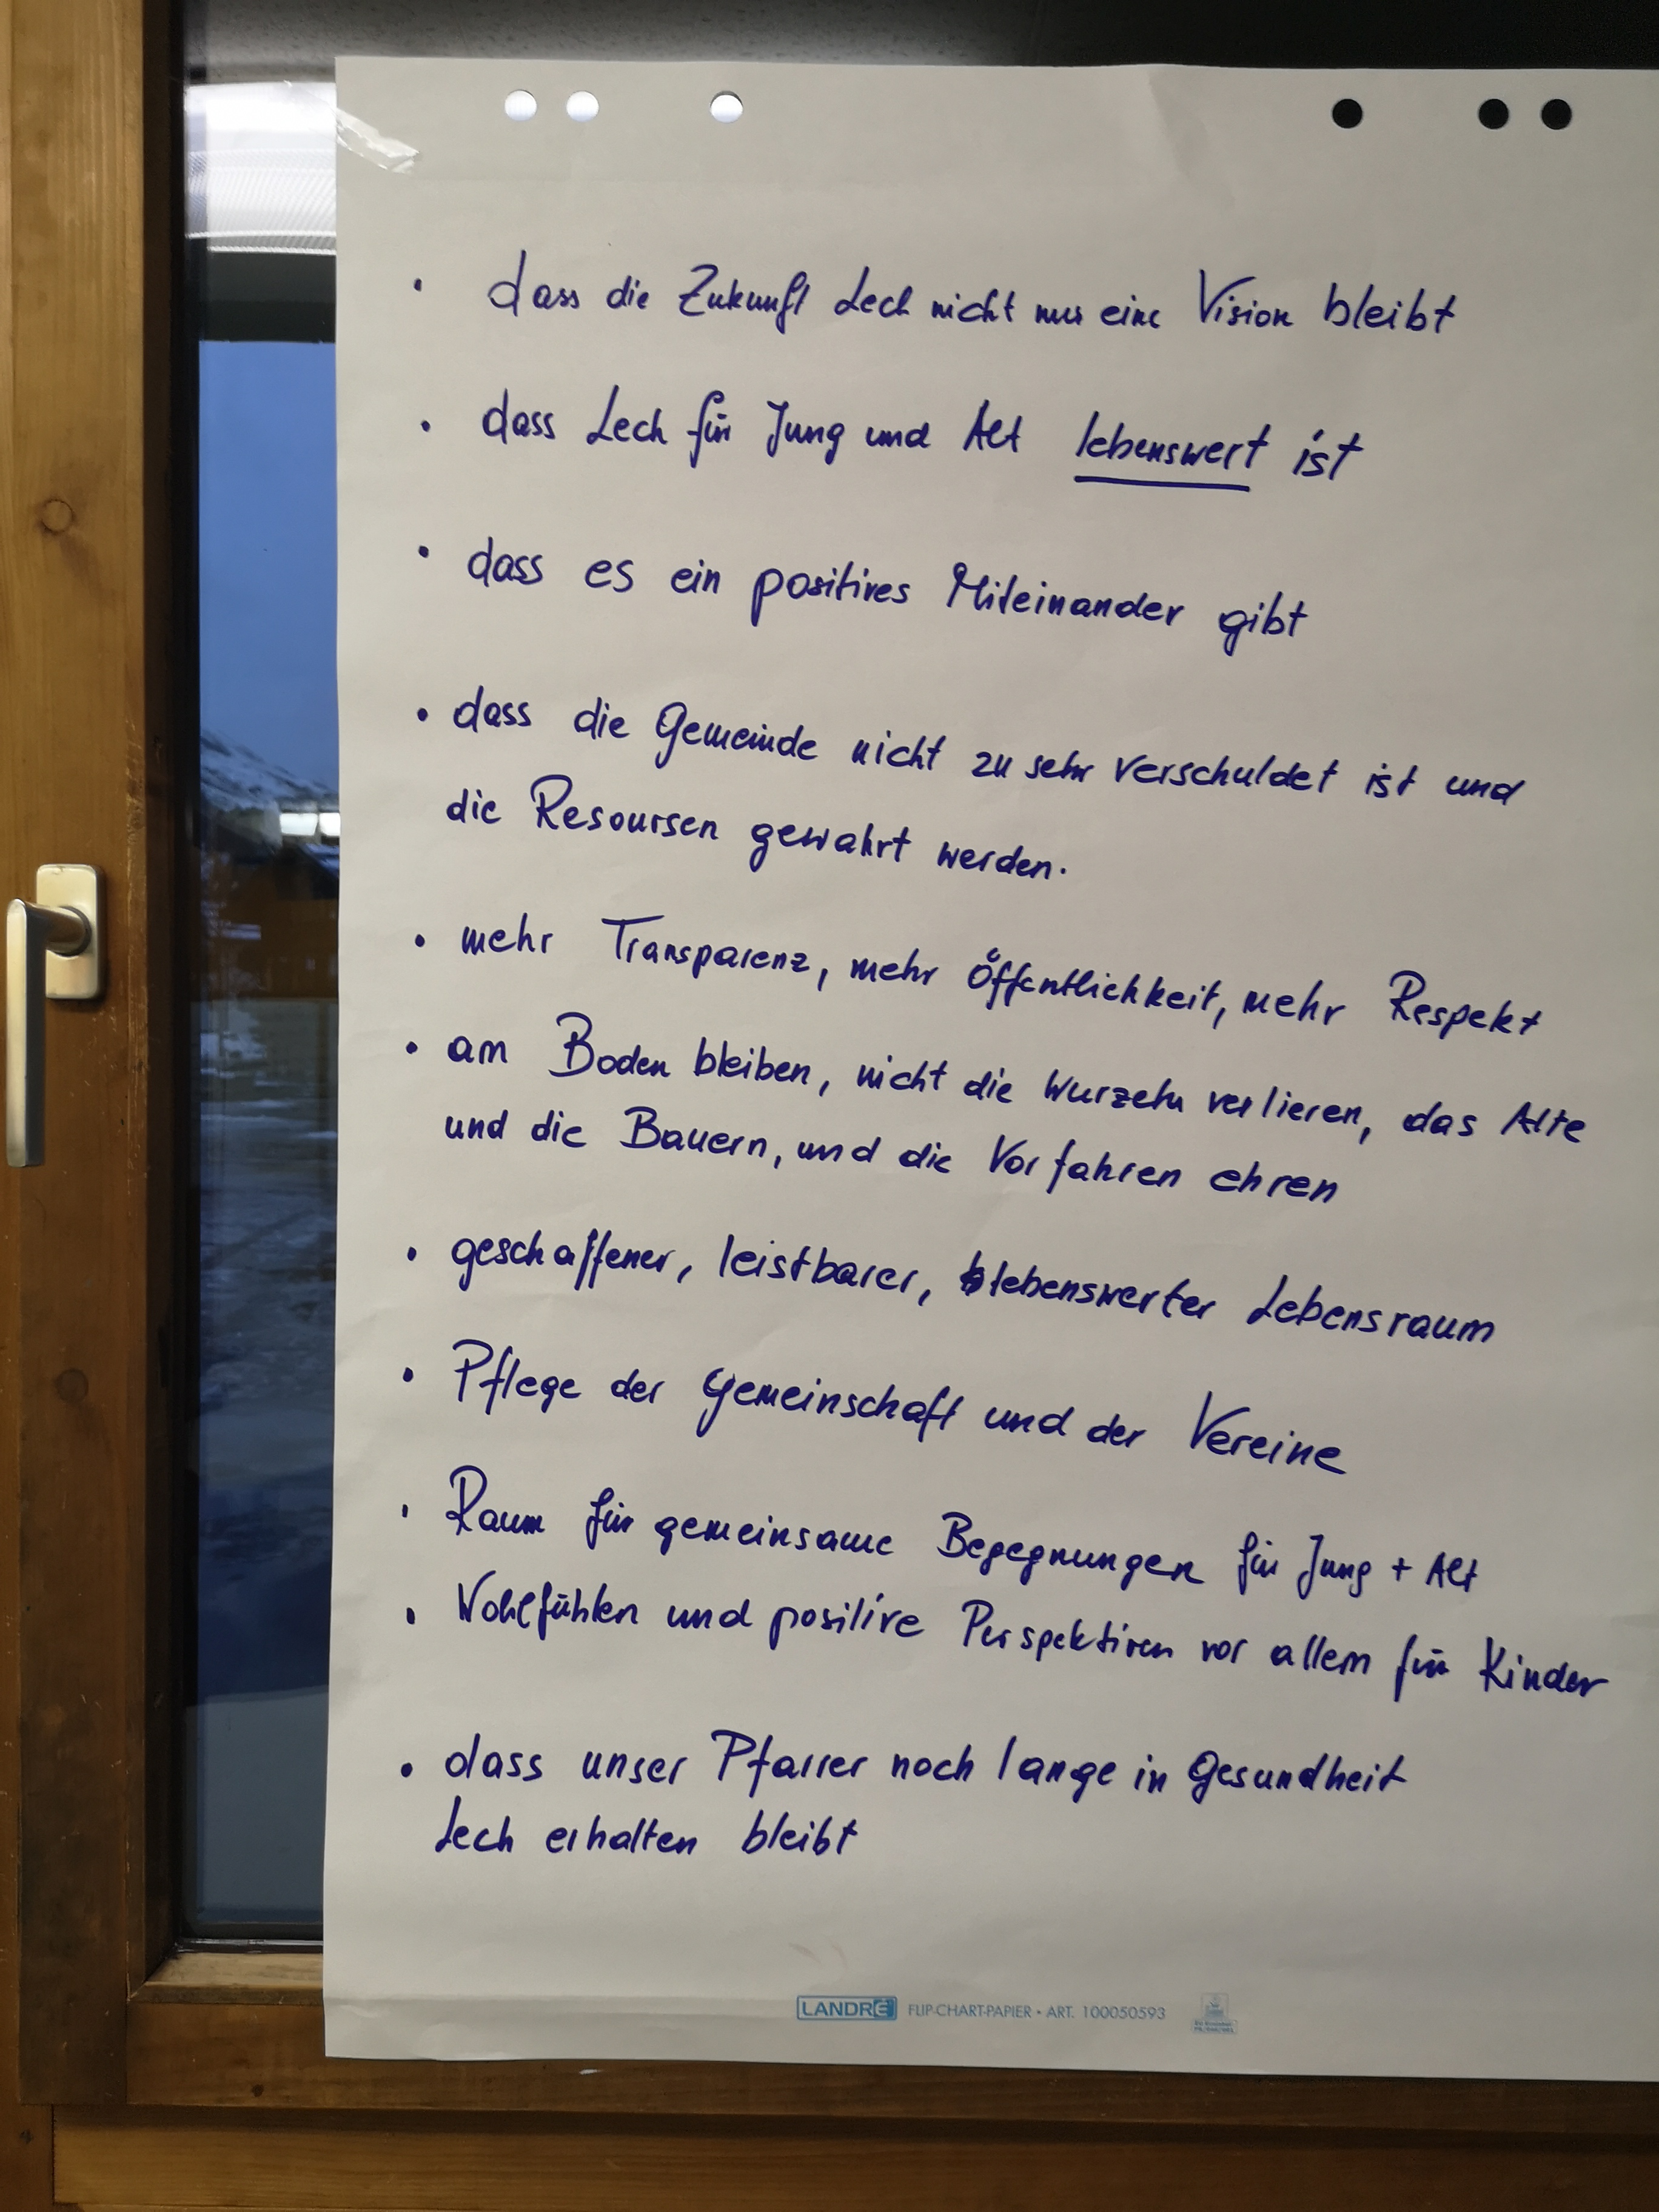 • dass die Zukunft Lech nicht nur eine Vision bleibt
• dass Lech für Jung und Alt lebenswert ist
• dass es ein positives Miteinander gibt
• dass die Gemeinde nicht zu sehr verschuldet ist und
die Resoursen gewahrt werden.
• mehr Transparenz, mehr Öffentlichkeit, mehr Respekt
• am Boden bleiben, nicht die Wurzeln verlieren, das Alte
und die Bauern, und die Vorfahren ehren
• geschaffener, leistbarer, lebenswerter Lebensraum
• Pflege der Gemeinschaft und der Vereine
• Raum für gemeinsame Begegnungen für Jung + Alt
• Wohlfühlen und positive Perspektiven vor allem für Kinder
• dass unser Pfarrer noch lange in Gesundheit
Lech erhalten bleibt
LANDRÉ FLIP-CHART-PAPIER • ART. 100050593